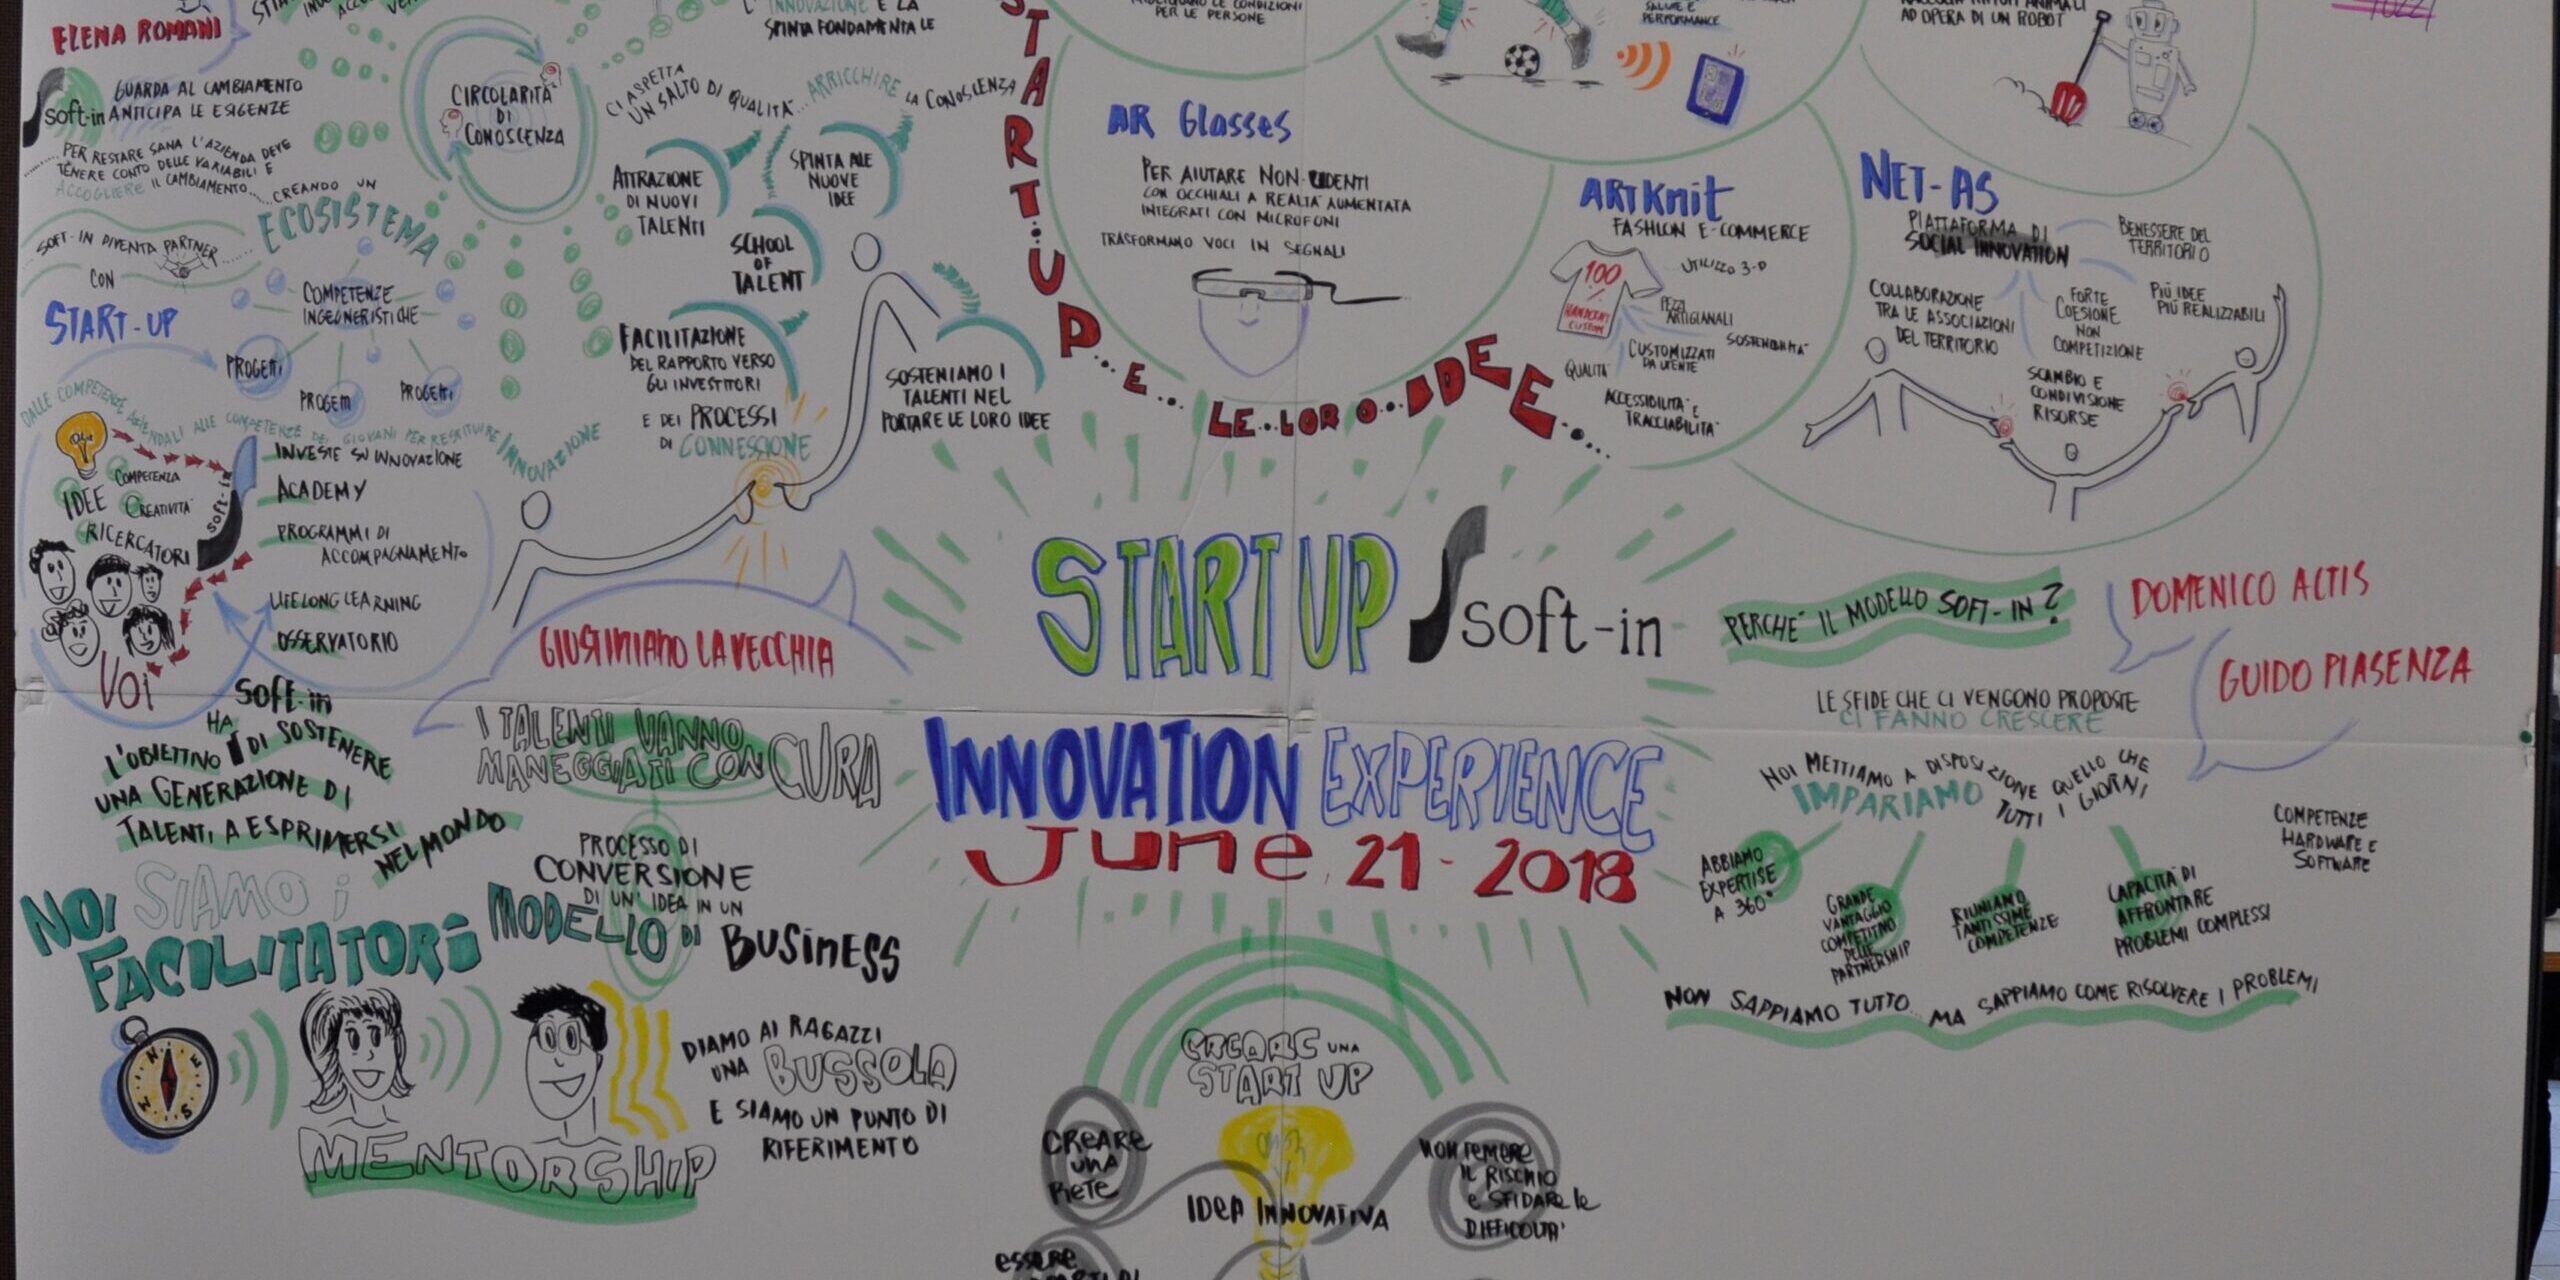 ELENA ROMANI
INNOVAZIONE E LA
SPINTA FONDAMENTALE
soft-in
GUARDA AL CAMBIAMENTO
ANTICIPA LE ESIGENZE
PER RESTARE SANA L'AZIENDA DEVE
TENERE CONTO DELLE VARIABILI E
ACCOGLIERE IL CAMBIAMENTO... CREANDO UN
ECOSISTEMA
SOFT-IN DIVENTA PARTNER
CON
START-UP
COMPETENZE
INGEGNERISTICHE
PROGETTI
PROGETTI
PROGETTI
CIRCOLARITÀ
DI
CONOSCENZA
CI ASPETTA
UN SALTO DI QUALITÀ... ARRICCHIRE LA CONOSCENZA
ATTRAZIONE
DI NUOVI
TALENTI
SPINTA ALLE
NUOVE
IDEE
SCHOOL
OF
TALENT
FACILITAZIONE
DEL RAPPORTO VERSO
GLI INVESTITORI
E DEI PROCESSI
DI CONNESSIONE
SOSTENIAMO I
TALENTI NEL
PORTARE LE LORO IDEE
DALLE COMPETENZE AZIENDALI ALLE COMPETENZE DEI GIOVANI PER RESTITUIRE INNOVAZIONE
IDEE
COMPETENZA
CREATIVITÀ
RICERCATORI
soft-in
VOI
INVESTE SU INNOVAZIONE
ACADEMY
PROGRAMMI DI
ACCOMPAGNAMENTO
LIFELONG LEARNING
OSSERVATORIO
START..UP...E...LE..LORO...IDEE...
PER LE PERSONE
SALUTE E
PERFORMANCE
AD OPERA DI UN ROBOT
AR Glasses
PER AIUTARE NON UDENTI
CON OCCHIALI A REALTÀ AUMENTATA
INTEGRATI CON MICROFONI
TRASFORMANO VOCI IN SEGNALI
ARTKnit
FASHION E-COMMERCE
100
%
HANDCRAFT
CUSTOM
UTILIZZO 3-D
PEZZI
ARTIGIANALI
SOSTENIBILITÀ
CUSTOMIZZATI
DA UTENTE
QUALITÀ
ACCESSIBILITÀ E
TRACCIABILITÀ
NET-AS
PIATTAFORMA DI
SOCIAL INNOVATION
BENESSERE DEL
TERRITORIO
COLLABORAZIONE
TRA LE ASSOCIAZIONI
DEL TERRITORIO
FORTE
COESIONE
NON
COMPETIZIONE
PIÙ IDEE
PIÙ REALIZZABILI
SCAMBIO E
CONDIVISIONE
RISORSE
START UP soft-in
INNOVATION EXPERIENCE
June 21-2018
GIUSTINIANO LA VECCHIA
I TALENTI VANNO
MANEGGIATI CON CURA
soft-in
HA
L'OBIETTIVO DI SOSTENERE
UNA GENERAZIONE DI
TALENTI A ESPRIMERSI
NEL MONDO
NOI SIAMO i
FACILITATORI
PROCESSO DI
CONVERSIONE
DI UN'IDEA IN UN
MODELLO DI BUSINESS
N
E
S
MENTORSHIP
DIAMO AI RAGAZZI
UNA BUSSOLA
E SIAMO UN PUNTO DI
RIFERIMENTO
PERCHÉ IL MODELLO SOFT-IN?
DOMENICO ACTIS
GUIDO PIASENZA
LE SFIDE CHE CI VENGONO PROPOSTE
CI FANNO CRESCERE
NOI METTIAMO A DISPOSIZIONE QUELLO CHE
IMPARIAMO TUTTI I GIORNI
ABBIAMO
EXPERTISE
A 360°
GRANDE
VANTAGGIO
COMPETITIVO
DELLE
PARTNERSHIP
RIUNIAMO
TANTISSIME
COMPETENZE
CAPACITÀ DI
AFFRONTARE
PROBLEMI COMPLESSI
COMPETENZE
HARDWARE E
SOFTWARE
NON SAPPIAMO TUTTO... MA SAPPIAMO COME RISOLVERE I PROBLEMI
CREARE UNA
START UP
CREARE
UNA
RETE
IDEA INNOVATIVA
NON TEMERE
IL RISCHIO
E SFIDARE le
DIFFICOLTÀ
essere